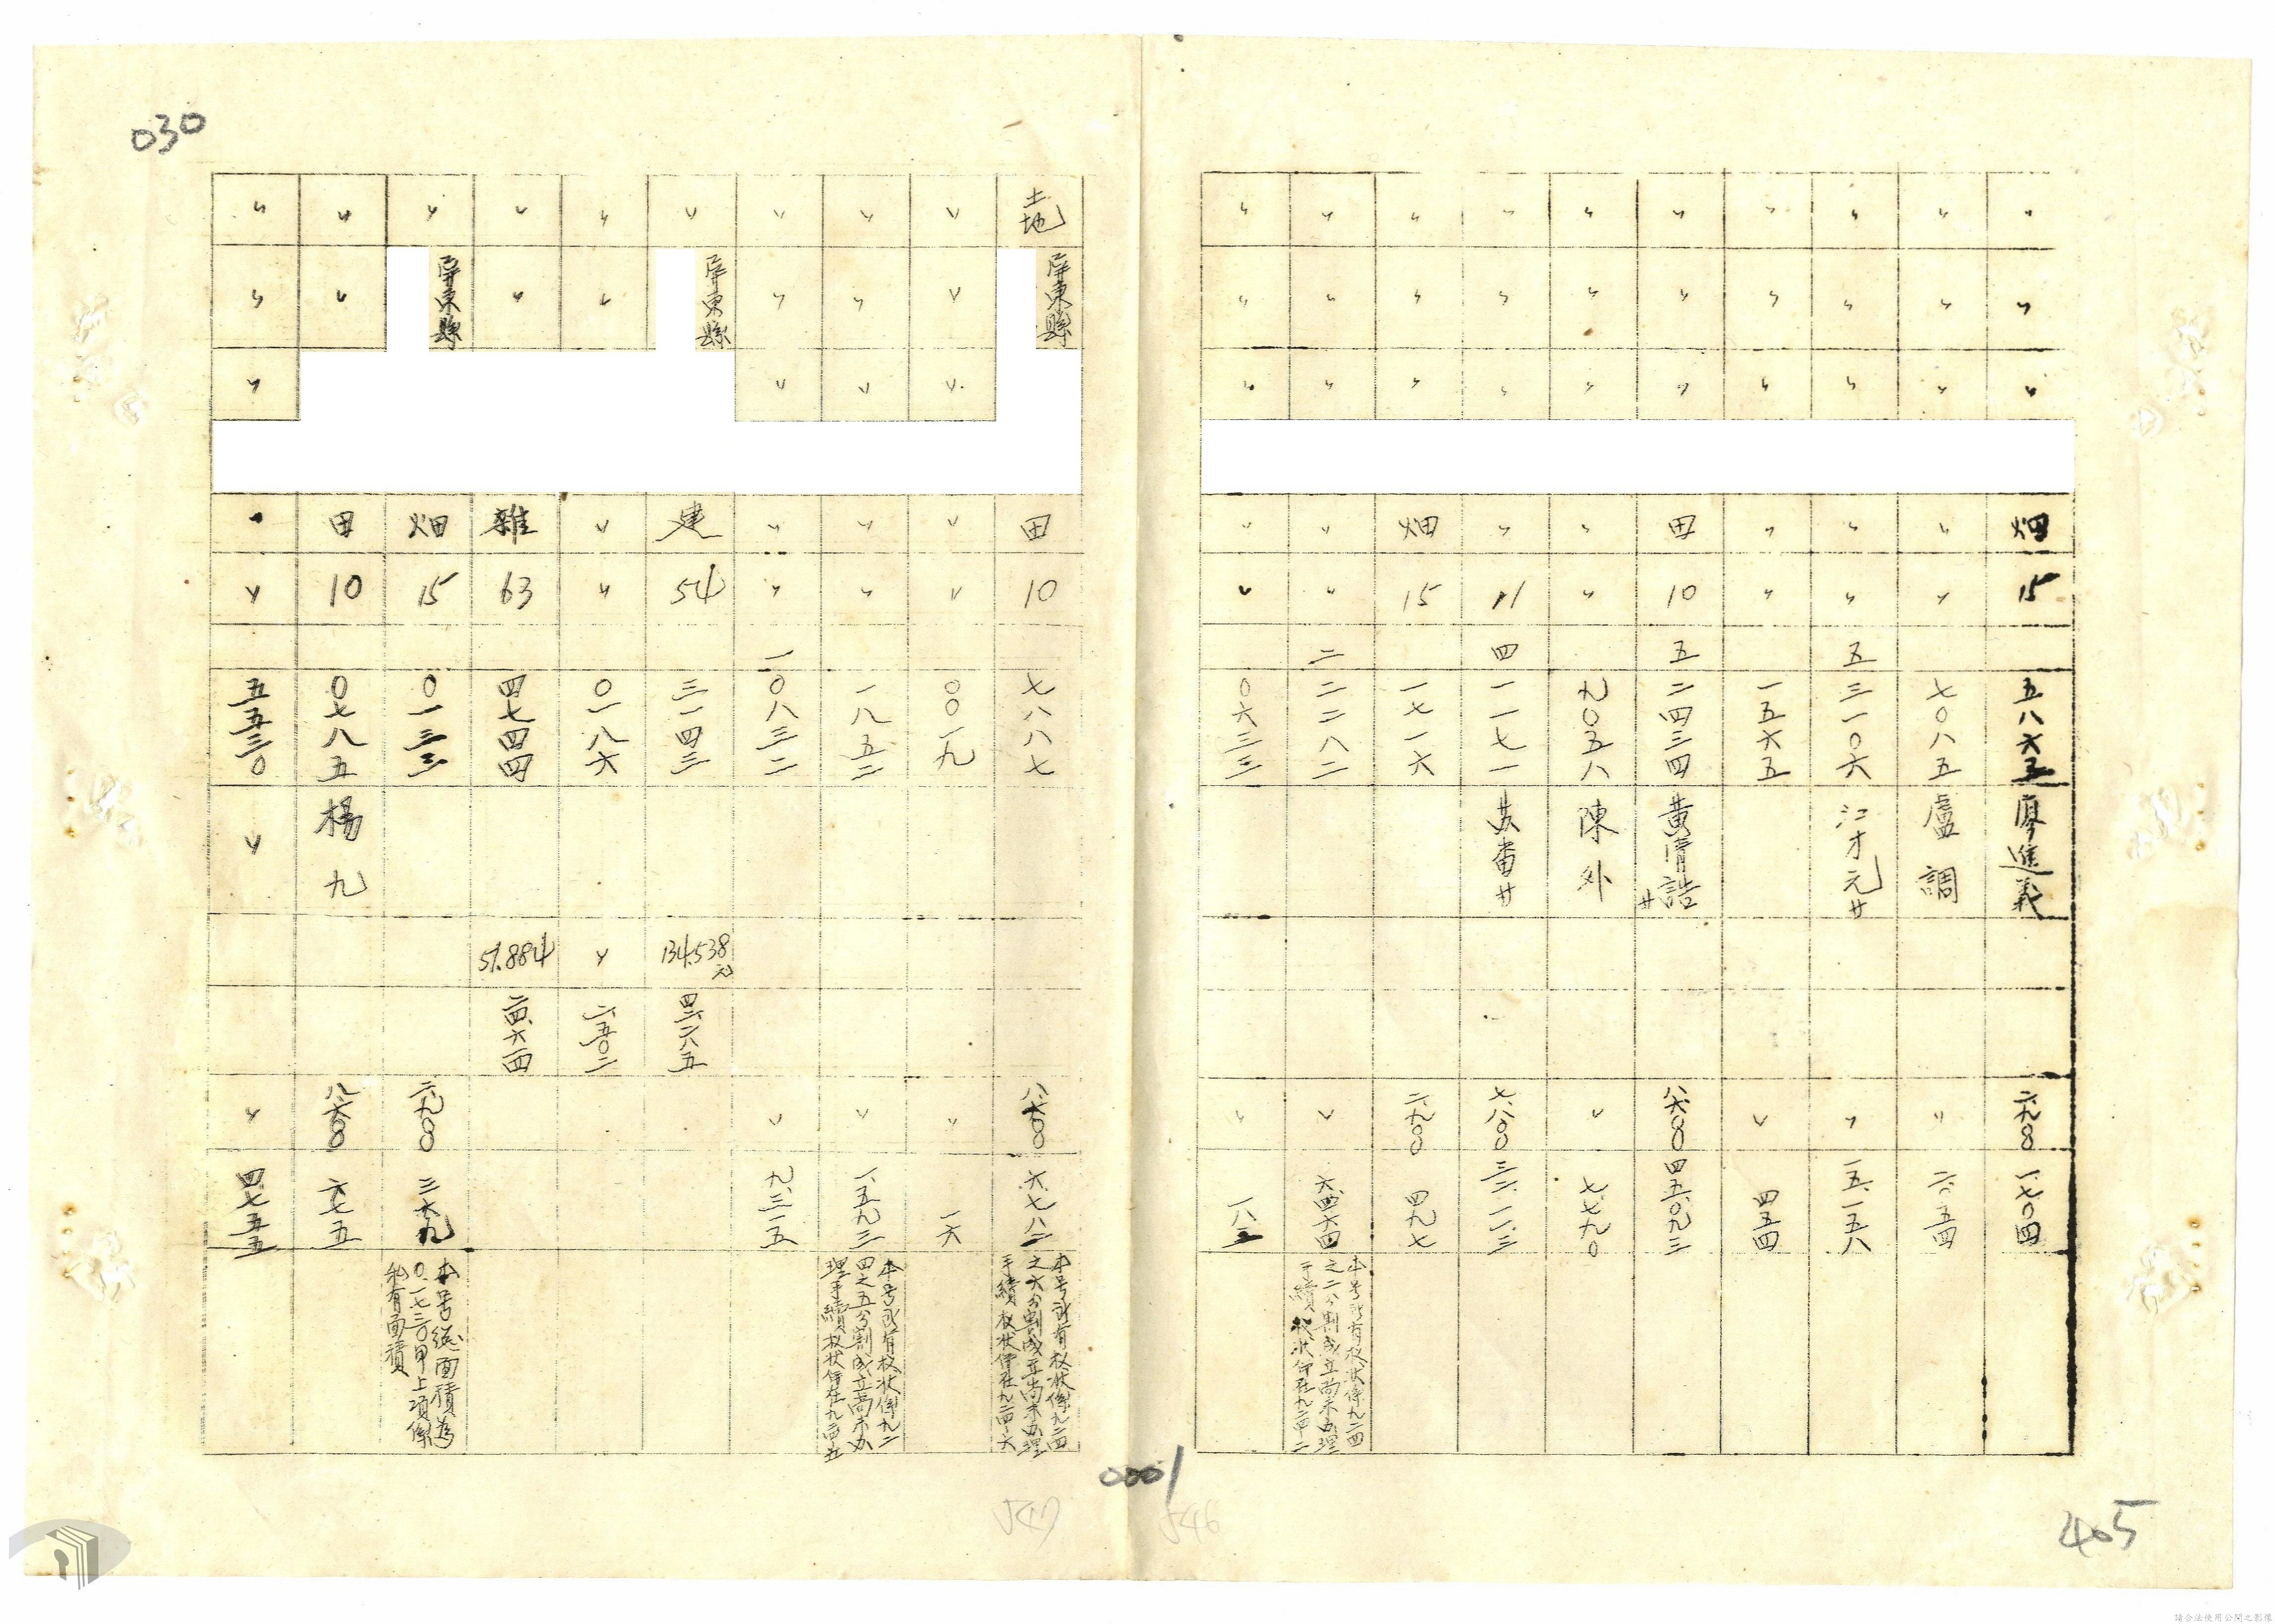 030
〃 〃 〃 畑 15 五八六五 廖進義 二九〇〇 一、七〇四
〃 〃 〃 〃 〃 七〇八五 盧調 〃 二、〇五四
〃 〃 〃 〃 〃 五 三一〇六 江才元廿 〃 一五、一五八
〃 〃 〃 〃 〃 一五六五 〃 四五四
〃 〃 〃 田 10 五 二四三四 黃清誥廿 八六〇〇 四五、〇九三
〃 〃 〃 〃 〃 九〇五八 陳外 〃 七、七九〇
〃 〃 〃 〃 11 四 一一七一 番廿 七、八〇〇 三二、一一三
〃 〃 〃 畑 15 一七一六 二、九〇〇 四九七
〃 〃 〃 〃 〃 二 二二八二 〃 六、四六四
本号所有权状係九二四
之二分割成立尚未办理
手續权状仍在九二四之二
〃 〃 〃 〃 〃 〇六三三 〃 一八三
土地 屏東縣 田 10 七八八七 八、六〇〇 六、七八二
本号所有权状係九二四
之六分割成立尚未办理
手續权状仍在九二四之六
〃 〃 〃 〃 〃 〇〇一九 〃 一六
〃 〃 〃 〃 〃 一八五二 〃 一、五九三
本号所有权状係九二
四之五分割成立尚未办
理手續权状仍在九二四之五
〃 〃 〃 〃 〃 一 〇八三二 〃 九、三一五
〃 屏東縣 建 54 三一四三 134.538元 四二、二八五
〃 〃 〃 〃 〇一八六 〃 二、五〇二
〃 〃 雜 63 四七四四 51.884 二四、六一四
〃 屏東縣 畑 15 〇一三三 二、九〇〇 三六九
本号総面積為
〇、一七三〇甲上項係
私有面積
〃 〃 田 10 〇七八五 楊九 八、六〇〇 六七五
〃 〃 〃 〃 〃 五五三〇 〃 〃 四、七五五
0001
547
546
405
請合法使用公開之影像